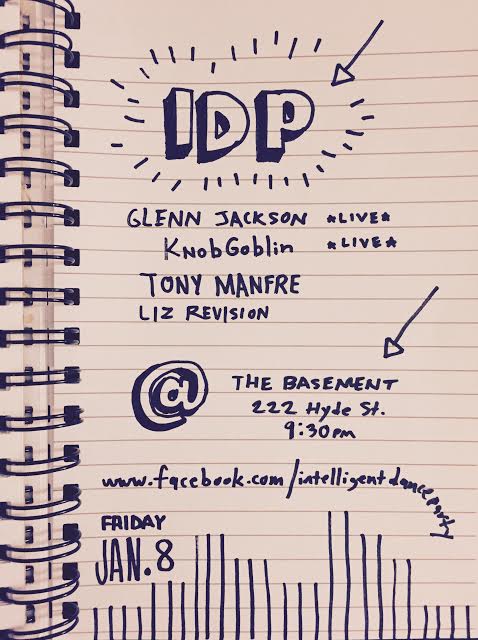 IDP
GLENN JACKSON *LIVE*
KnobGoblin *LIVE*
TONY MANFRE
LIZ REVISION
@ THE BASEMENT
222 Hyde St.
9:30pm
www.facebook.com/intelligentdanceparty
FRIDAY
JAN. 8